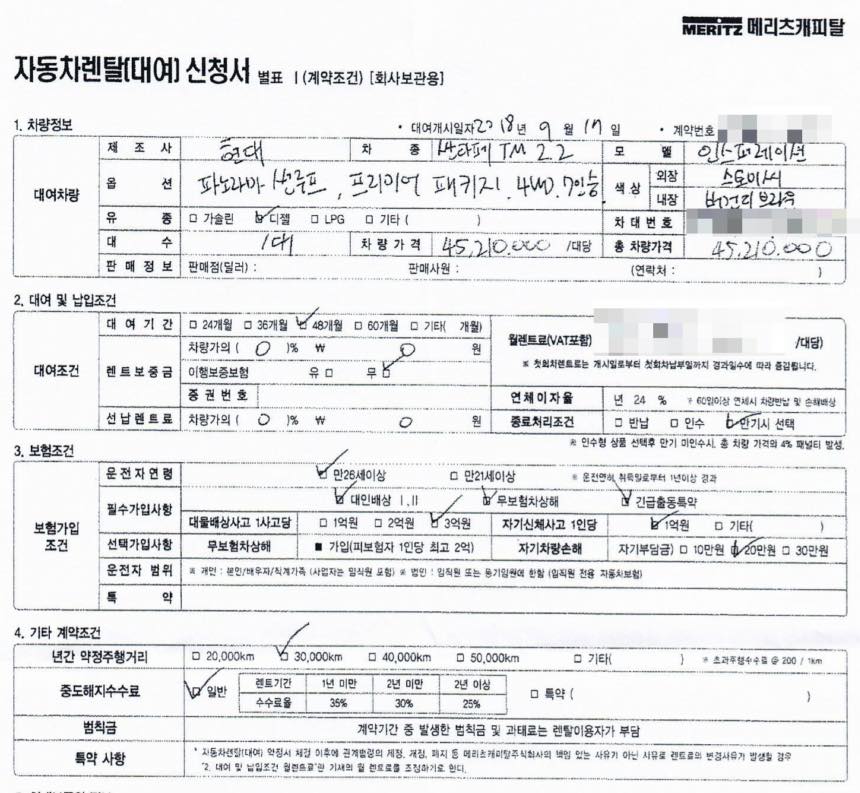 MERITZ 메리츠캐피탈
자동차렌탈(대여) 신청서 별표 I (계약조건) [회사보관용]
1. 차량정보 • 대여개시일자 2018년 9월 17일 • 계약번호
대여차량
제조사 현대 차종 싼타페 TM 2.2 모델 인스퍼레이션
옵션 파노라마 썬루프, 프리미어 패키지, 4WD, 7인승 색상 외장 스토미씨
내장 버건디 브라운
유종 □ 가솔린 ☑ 디젤 □ LPG □ 기타 ( ) 차대번호
대수 1대 차량가격 45,210,000 /대당 총 차량가격 45,210,000
판매정보 판매점(딜러) : 판매사원 : (연락처 : )
2. 대여 및 납입조건
대여조건
대여기간 □ 24개월 □ 36개월 ☑ 48개월 □ 60개월 □ 기타( 개월) 월렌트료(VAT포함) /대당)
렌트보증금 차량가의 ( 0 )% ₩ 0 원 ※ 첫회차렌트료는 개시일로부터 첫회차납부일까지 경과일수에 따라 증감됩니다.
이행보증보험 유 □ 무 ☑
증권번호 연체이자율 년 24 % ※ 60일이상 연체시 차량반납 및 손해배상
선납렌트료 차량가의 ( 0 )% ₩ 0 원 종료처리조건 □ 반납 □ 인수 ☑ 만기시 선택
※ 인수형 상품 선택후 만기 미인수시, 총 차량 가격의 4% 패널티 발생.
3. 보험조건
보험가입조건
운전자연령 ☑ 만26세이상 □ 만21세이상 ※ 운전면허 취득일로부터 1년이상 경과
필수가입사항 ☑ 대인배상 I, II ☑ 무보험차상해 ☑ 긴급출동특약
대물배상사고 1사고당 □ 1억원 □ 2억원 ☑ 3억원 자기신체사고 1인당 ☑ 1억원 □ 기타( )
선택가입사항 무보험차상해 ■ 가입(피보험자 1인당 최고 2억) 자기차량손해 자기부담금) □ 10만원 ☑ 20만원 □ 30만원
운전자 범위 ※ 개인 : 본인/배우자/직계가족 (사업자는 임직원 포함) ※ 법인 : 임직원 또는 동기임원에 한함 (임직원 전용 자동차보험)
특약
4. 기타 계약조건
년간 약정주행거리 □ 20,000km ☑ 30,000km □ 40,000km □ 50,000km □ 기타( ) ※ 초과주행수수료 @ 200 / 1km
중도해지수수료 ☑ 일반 렌트기간 1년 미만 2년 미만 2년 이상 □ 특약 ( )
수수료율 35% 30% 25%
범칙금 계약기간 중 발생한 범칙금 및 과태료는 렌탈이용자가 부담
특약 사항 * 자동차렌탈(대여) 약정서 체결 이후에 관계법령의 제정, 개정, 폐지 등 메리츠캐피탈주식회사의 책임 있는 사유가 아닌 사유로 렌트료의 변경사유가 발생할 경우
"2. 대여 및 납입조건 월렌트료"란 기재의 월 렌트료를 조정하기로 한다.